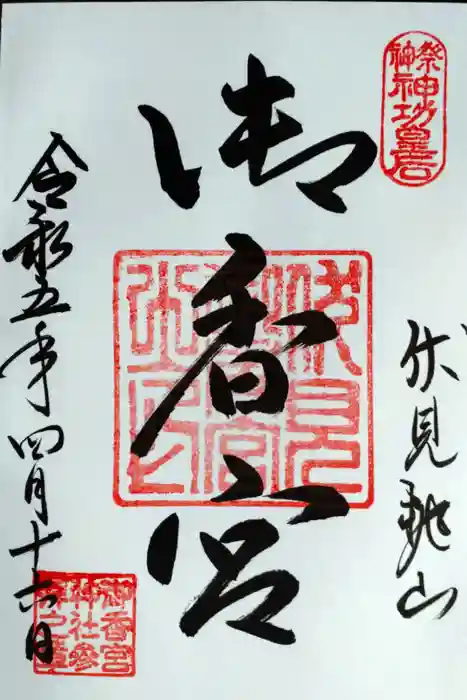 祭神神功皇后
伏見桃山
御香宮
伏見
令和五年四月十六日
御香宮
神社参